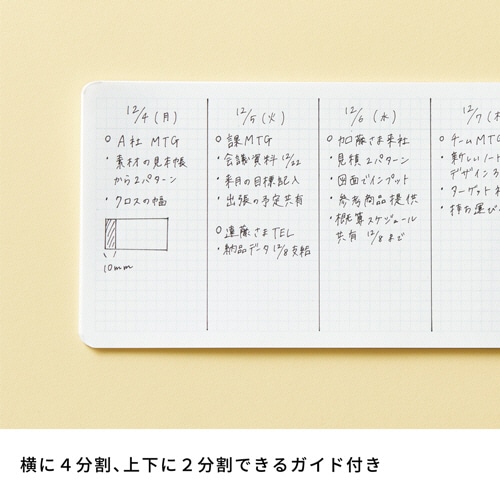 12/4(月)
○ A社 MTG
・素材の見本帳
から2パターン
・クロスの幅
10mm
12/5(火)
○ 課MTG
・会議資料 12/22
・来月の目標記入
・出張の予定共有
○ 遠藤さまTEL
・納品データ 12/8支給
12/6(水)
○ 加藤さま来社
・見積 2パターン
・図面でインプット
・参考商品提供
・概算スケジュール
共有 12/8まで
12/7(木
○ チームMTG
・新しいノート
デザイン3
・ターゲット
・持ち運び
横に4分割、上下に2分割できるガイド付き